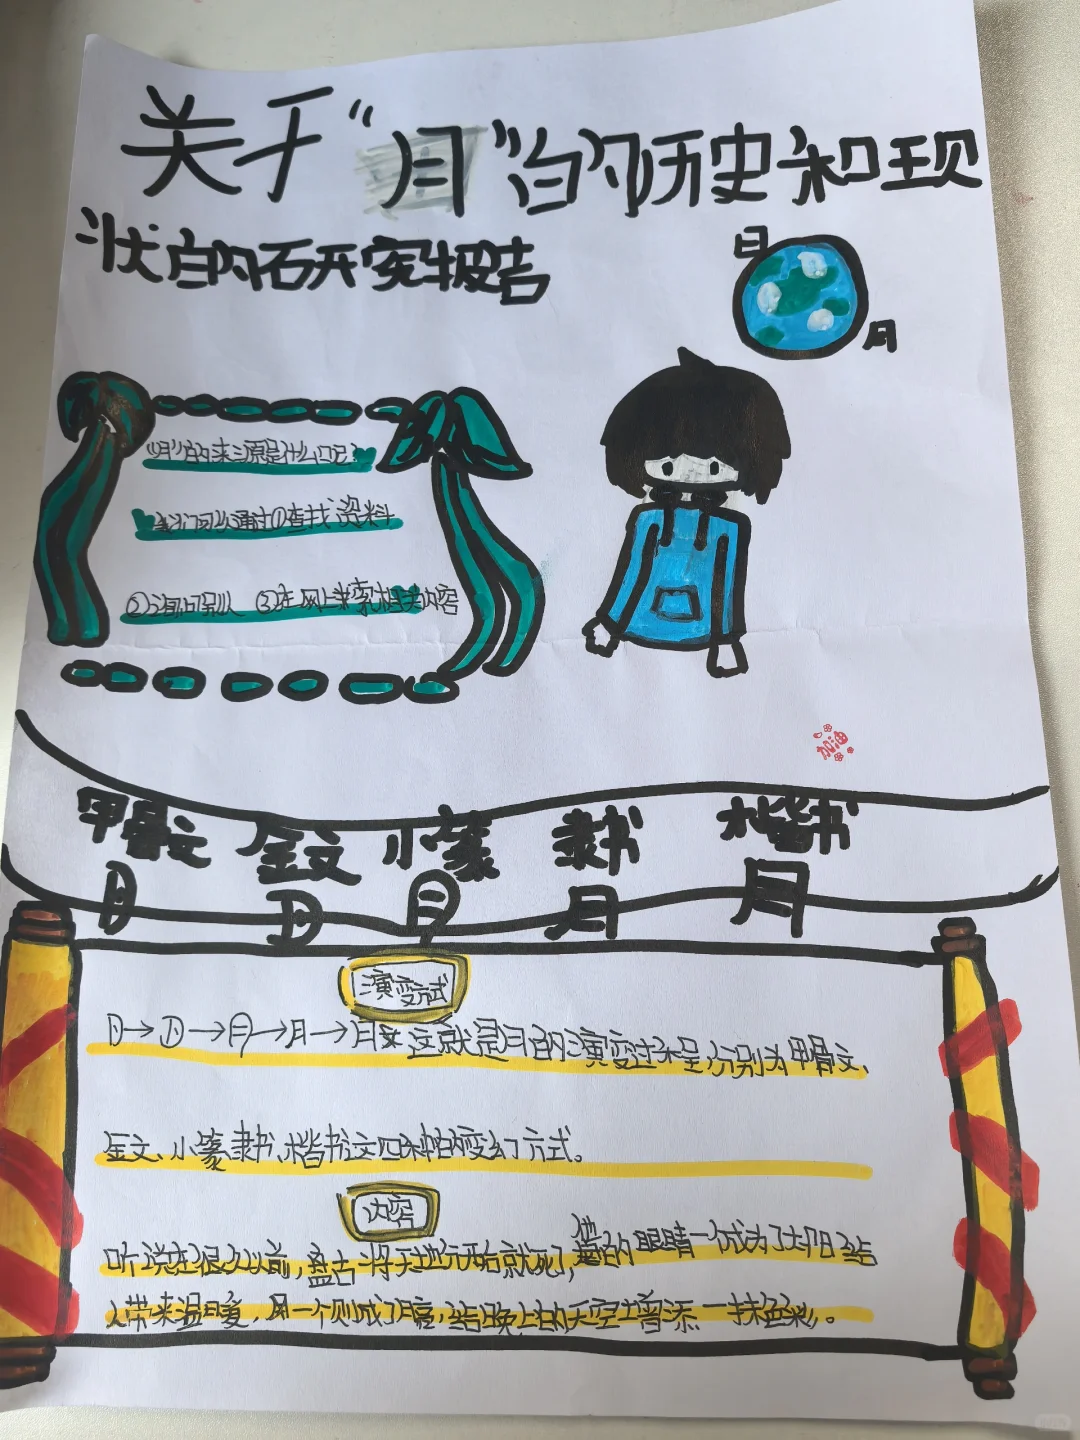 关于“月”的历史和现
状的研究报告
日
月
“月”的来源是什么呢?
我们可以通过①查找资料
②询问别人 ③在网上搜索相关内容
加油
甲骨文 金文 小篆 隶书 楷书
月 月 月
演变方式
月→月 这就是月的演变过程,分别为甲骨文、
金文、小篆隶书、楷书这四种的变幻方式。
内容
听说在很久以前,盘古将天地开始就死,他的眼睛一个成为了太阳给
人带来温暖,另一个则成了月亮,给晚上的天空增添一抹色彩。